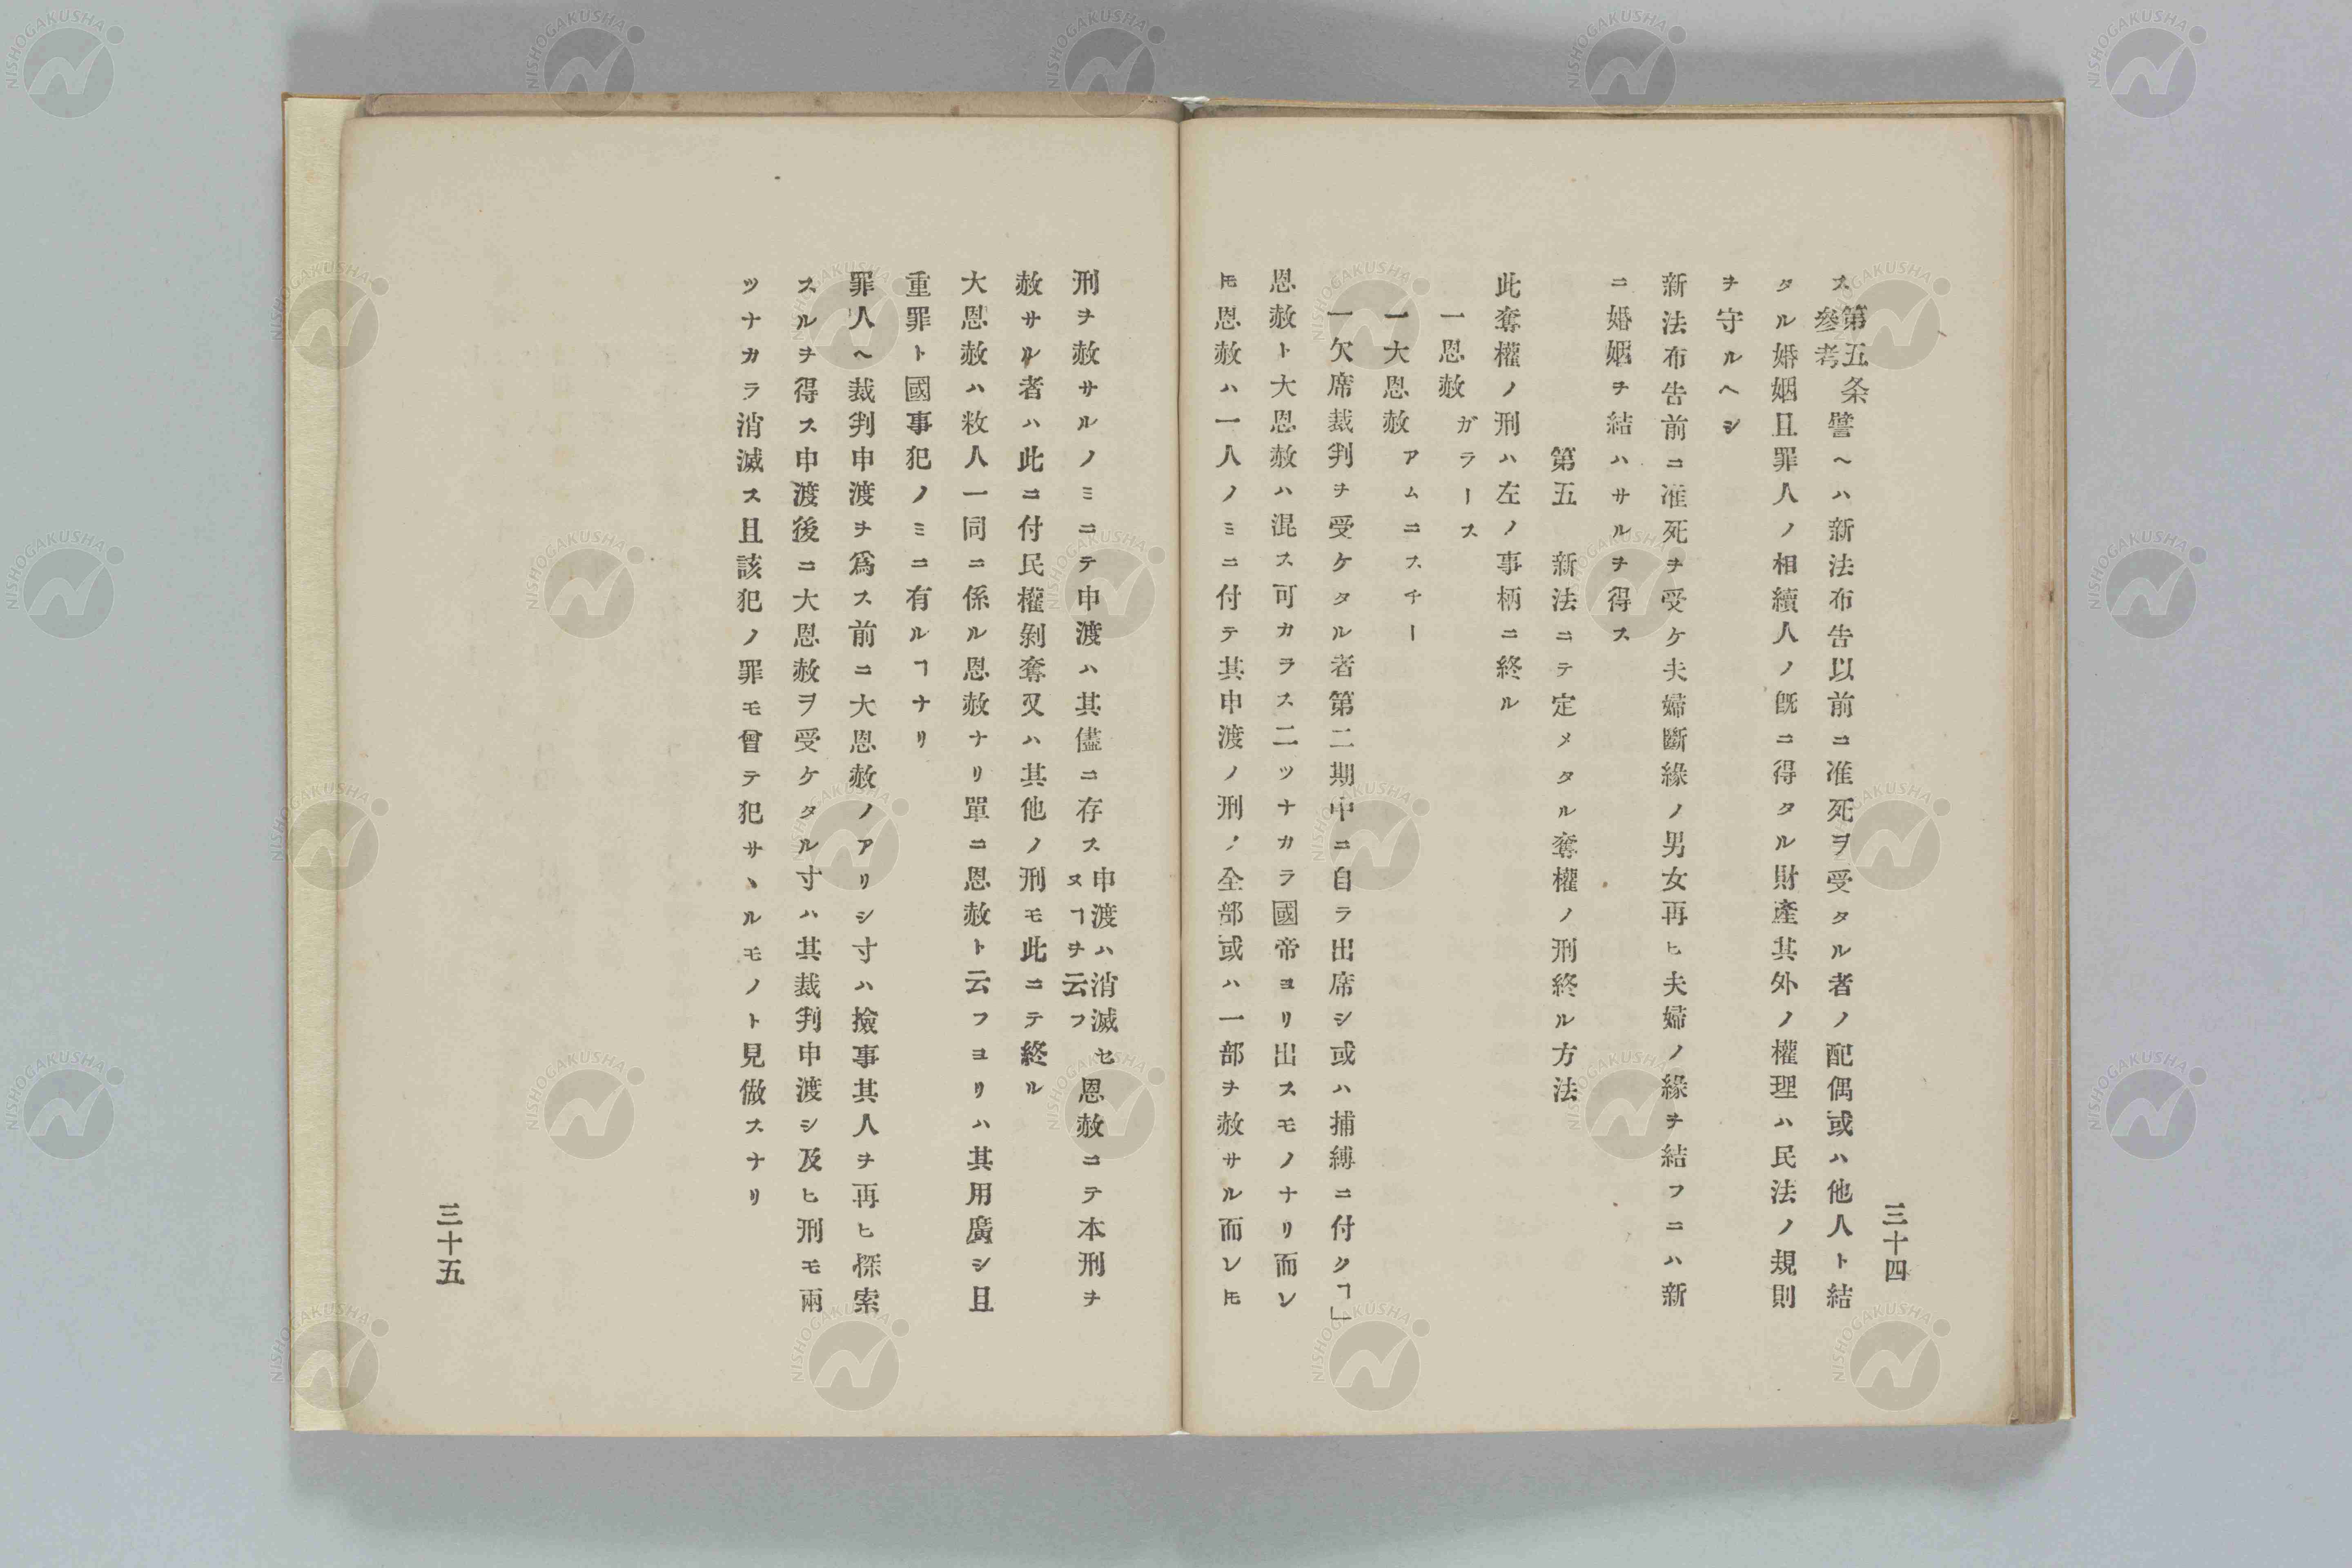 三十四
ス第五条参考譬ヘハ新法布告以前ニ准死ヲ受タル者ノ配偶或ハ他人ト結
タル婚姻且罪人ノ相續人ノ既ニ得タル財産其外ノ權理ハ民法ノ規則
ヲ守ルヘシ
新法布告前ニ准死ヲ受ケ夫婦斷緣ノ男女再ヒ夫婦ノ緣ヲ結フニハ新
ニ婚姻ヲ結ハサルヲ得ス
第五 新法ニテ定メタル奪權ノ刑終ル方法
此奪權ノ刑ハ左ノ事柄ニ終ル
一恩赦 ガラース
一大恩赦 アムニスチー
一欠席裁判ヲ受ケタル者第二期中ニ自ラ出席シ或ハ捕縛ニ付クヿ」
恩赦ト大恩赦ハ混ス可カラス二ツナカラ國帝ヨリ出スモノナリ而シ
𪜈恩赦ハ一人ノミニ付テ其申渡ノ刑ノ全部或ハ一部ヲ赦サル而シ𪜈
刑ヲ赦サルノミニテ申渡ハ其儘ニ存ス申渡ハ消滅セヌヿヲ云フ恩赦ニテ本刑ヲ
赦サルル者ハ此ニ付民權剝奪又ハ其他ノ刑モ此ニテ終ル
大恩赦ハ敉人一同ニ係ル恩赦ナリ單ニ恩赦ト云フヨリハ其用廣シ且
重罪ト國事犯ノミニ有ルヿナリ
罪人ヘ裁判申渡ヲ爲ス前ニ大恩赦ノアリシ寸ハ撿事其人ヲ再ヒ探索
スルヲ得ス申渡後ニ大恩赦ヲ受ケタル寸ハ其裁判申渡シ及ヒ刑モ兩
ツナカラ消滅ス且該犯ノ罪モ曾テ犯サヽルモノト見倣スナリ
三十五